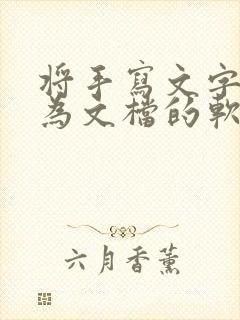 將手寫文字
為文檔的軟
六月香薰